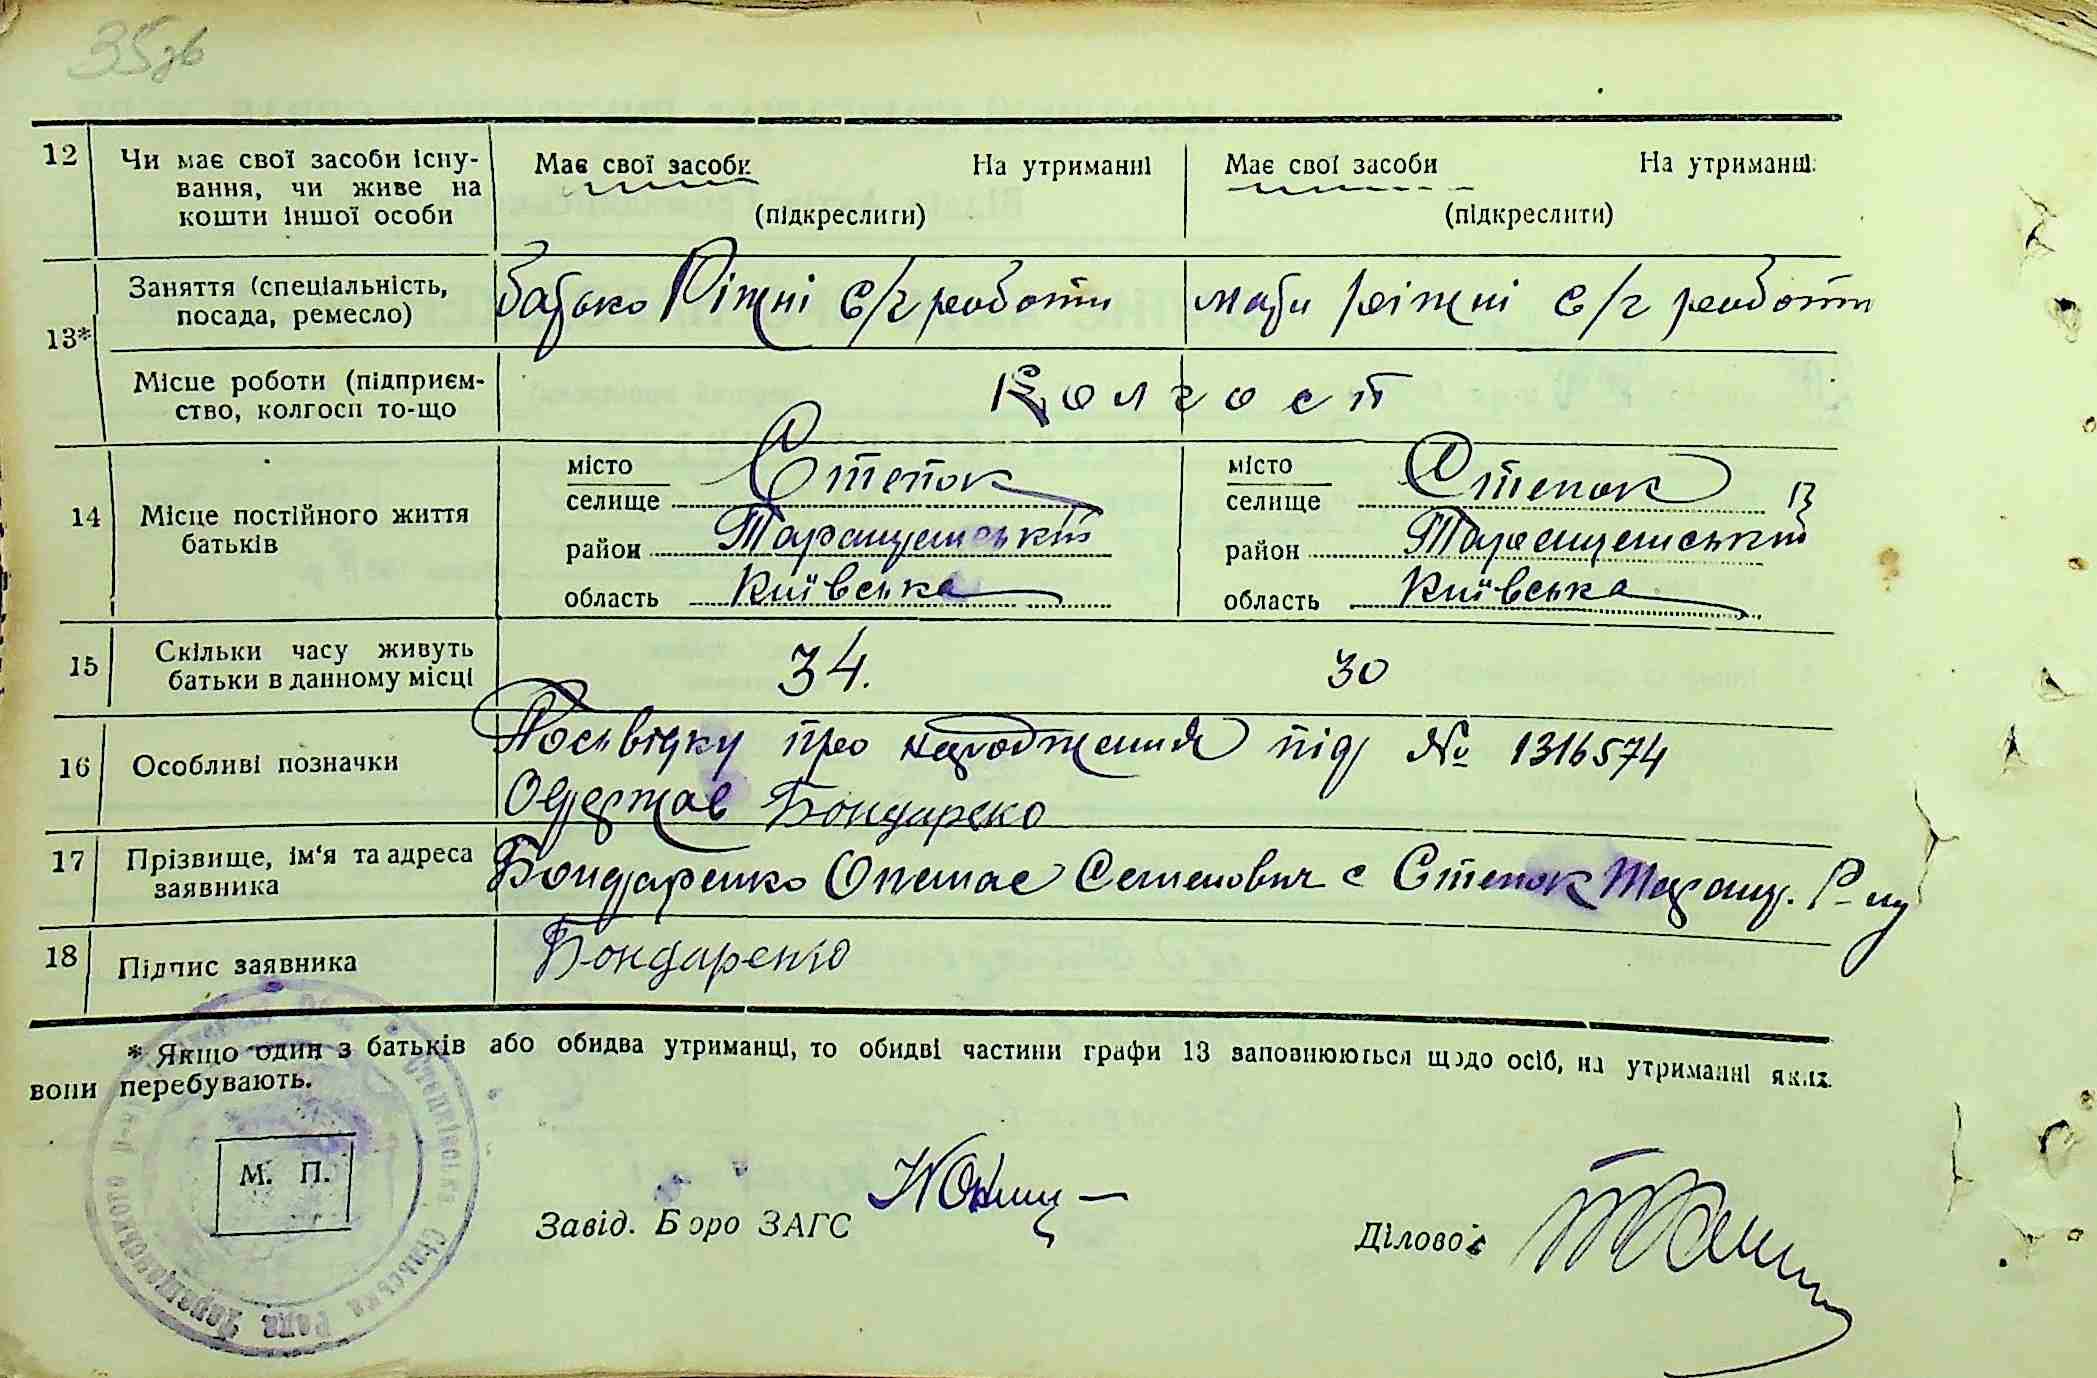 35 зв
12 Чи має свої засоби існу- Має свої засоби На утриманні Має свої засоби На утриманні
вання, чи живе на
кошти іншої особи (підкреслити) (підкреслити)
13* Заняття (спеціальність, батько Ріжні с/г роботи мати ріжні с/г роботи
посада, ремесло)
Місце роботи (підприєм- Колгосп
ство, колгосп то-що
14 Місце постійного життя
батьків
місто
селище Степок
район Таращанський
область Київська
місто
селище Степок
район Таращанський
область Київська
15 Скільки часу живуть 34. 30
батьки в данному місці
16 Особливі позначки Посвідку про народження під № 1316574
Одержав Бондарено
17 Прізвище, ім'я та адреса Бондаренко Семенович с Степок Таращ. Р-ну
заявника
18 Підпис заявника Бондаренко
* Якщо один з батьків або обидва утриманці, то обидві частини графи 13 заповнюються щодо осіб, на утриманні яких
вони перебувають.
М. П.
Завід. Бюро ЗАГС
Діловод
Степківська Сільська Рада Таращанського р-ну